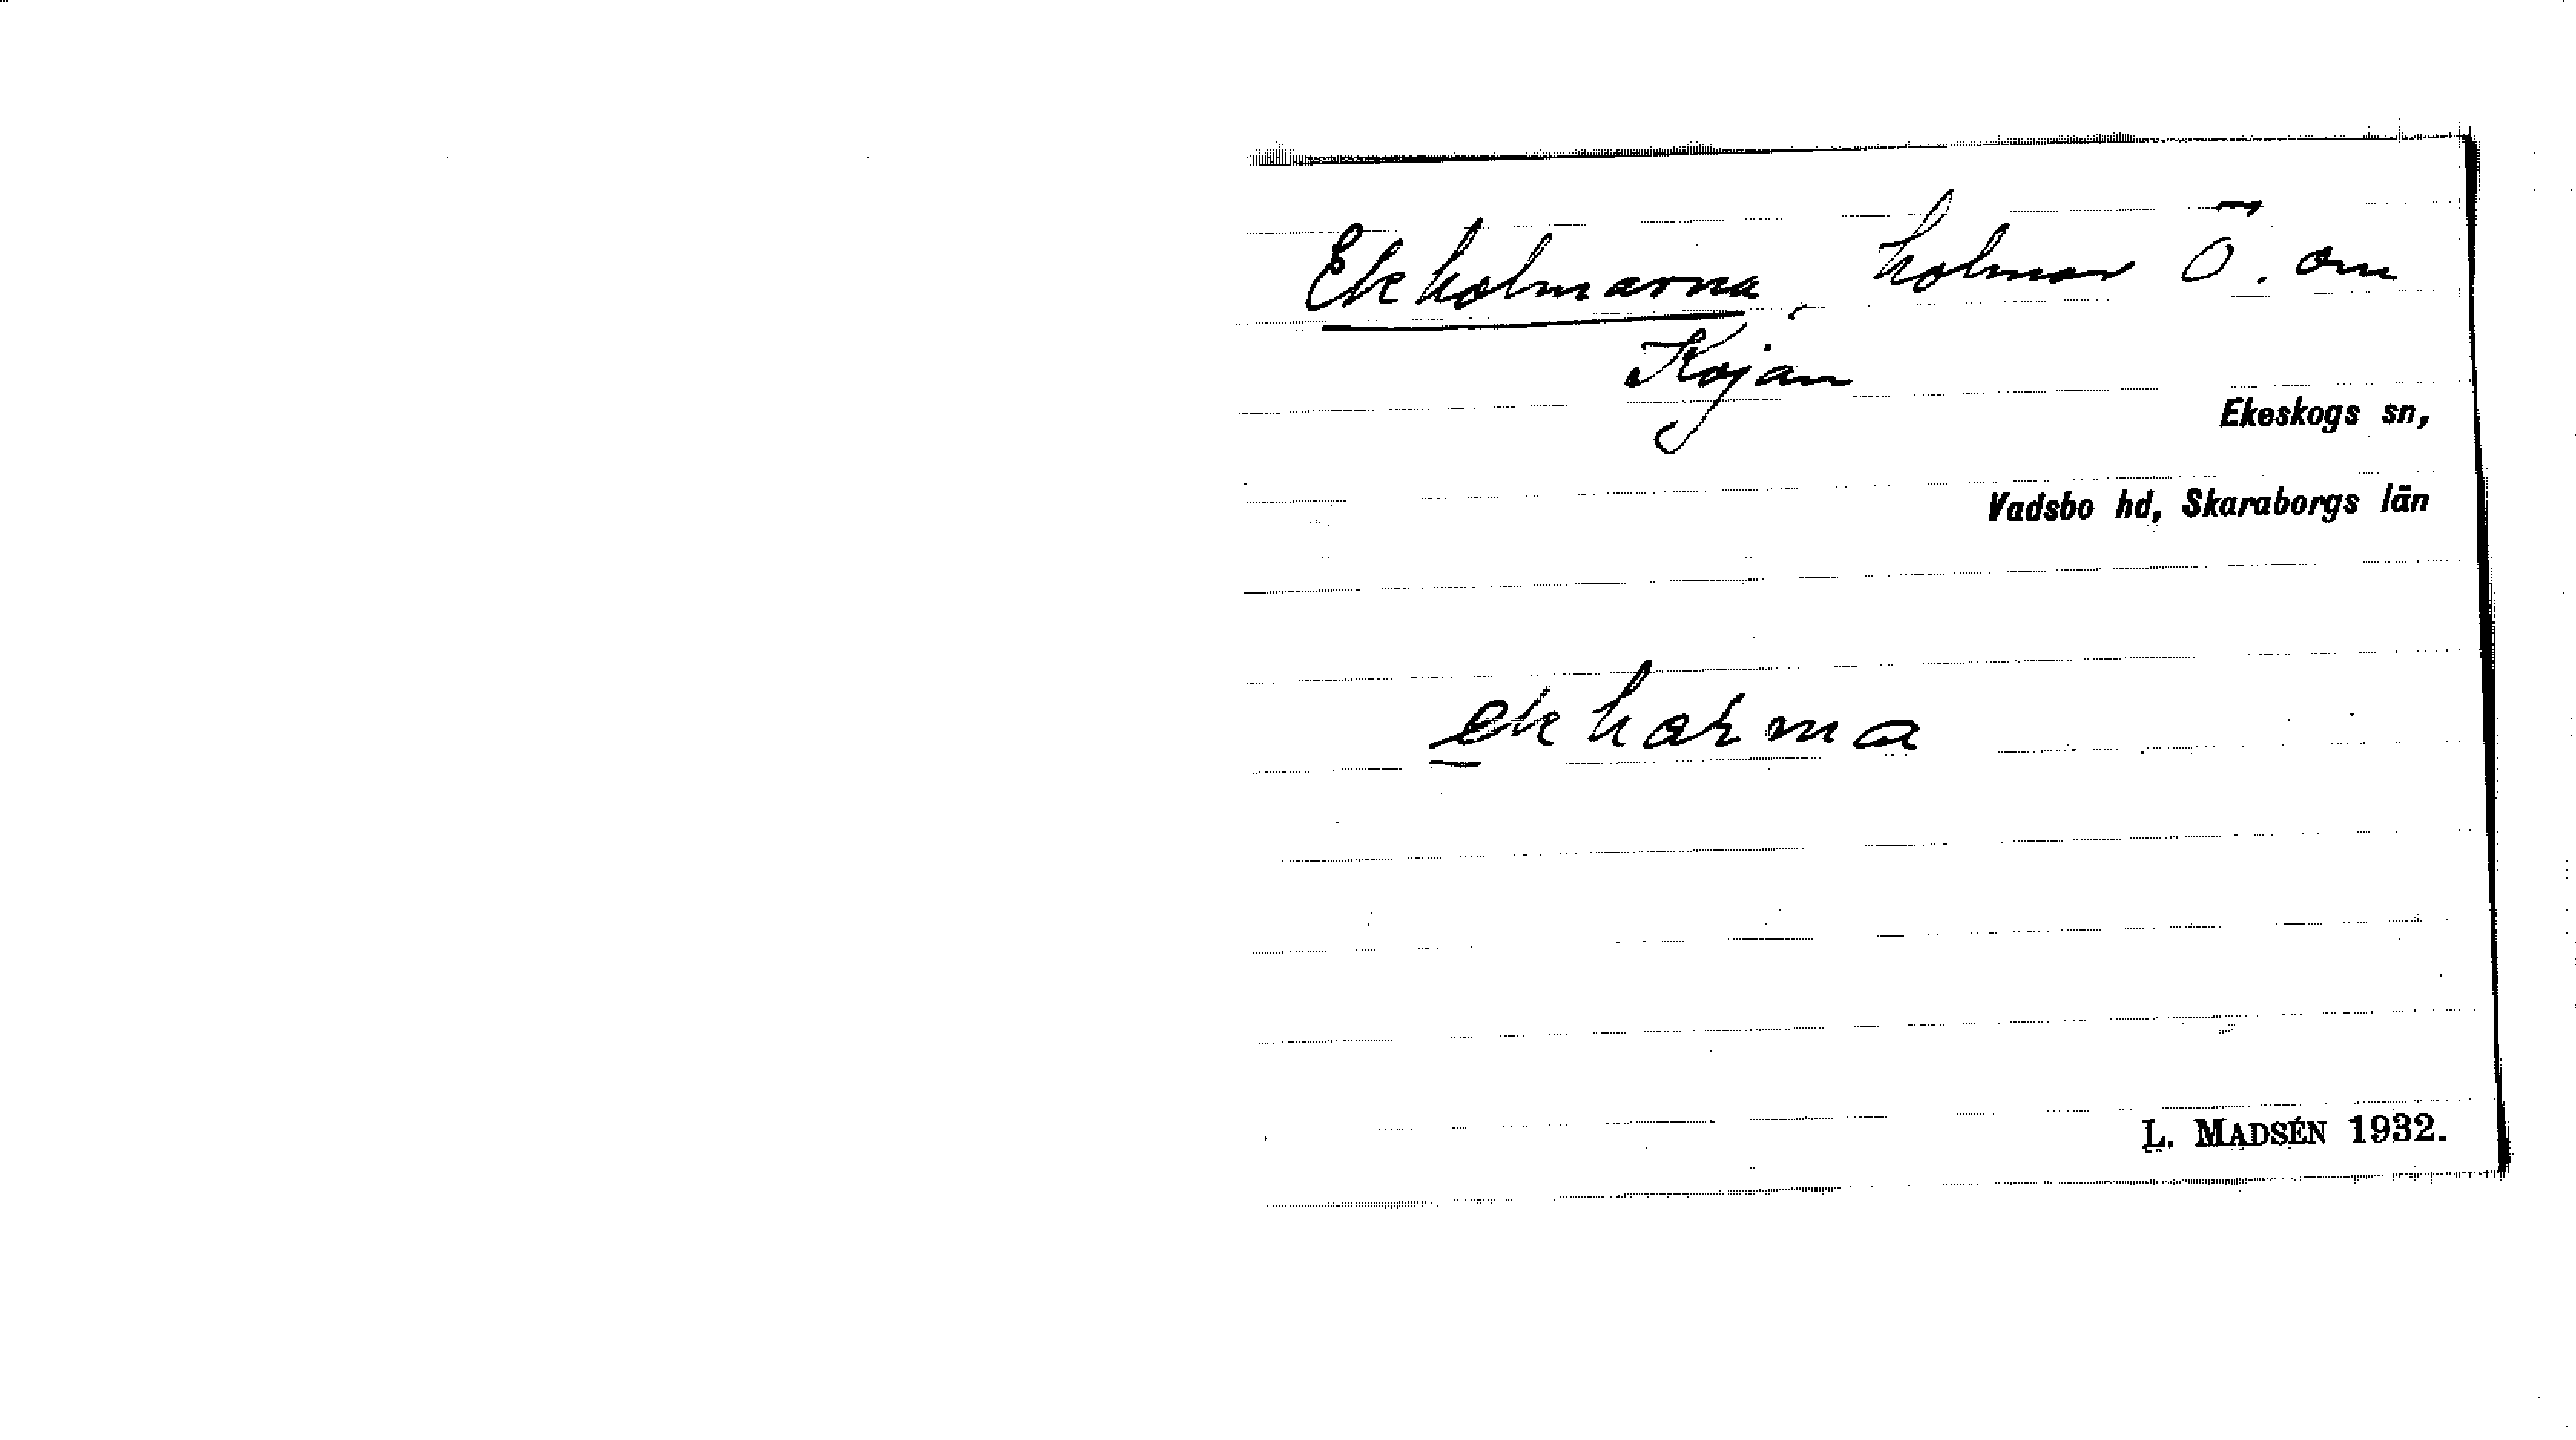 Ekholmarna, holmar Ö. om
Kojan
Ekeskogs sn,
Vadsbo hd, Skaraborgs län
L. MADSÉN 1932.